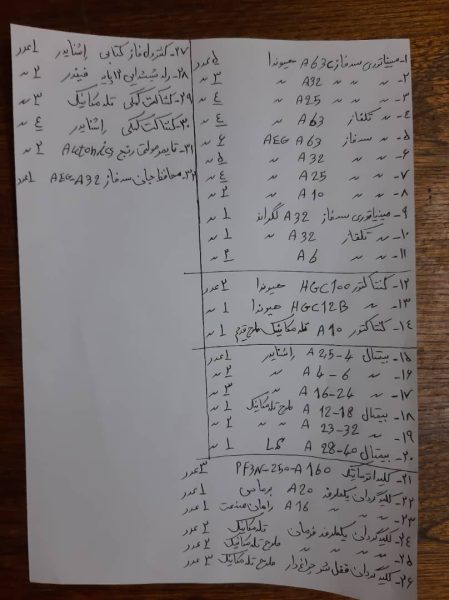 ۱- مینیاتوری سه فاز A 63C هیوندا ۵ عدد
۲- 〃 〃 〃 A32 〃 ۳ 〃
۳- 〃 〃 〃 A25 〃 ٤ 〃
٤- 〃 تکفاز A63 〃 ٤ 〃
۵- 〃 سه فاز AEG A63 ۶ 〃
۶- 〃 〃 A32 〃 ۵ 〃
۷- 〃 〃 A25 〃 ٤ 〃
۸- 〃 〃 A10 〃 ۲ 〃
۹- مینیاتوری سه فاز A32 لگراند ۱ 〃
۱۰- 〃 تکفاز A32 〃 ۱ 〃
۱۱- 〃 〃 A6 〃 ۲ 〃
۱۲- کنتاکتور HGC100 هیوندا ۲ عدد
۱۳- 〃 HGC12B هیوندا ۱ 〃
۱٤- کنتاکتور A10 تله مکانیک طرح قدیم ۱ 〃
۱۵- بیمتال A 2,5-4 اشنایدر ۱ عدد
۱۶- 〃 A 4-6 〃 ۲ 〃
۱۷- 〃 A 16-24 〃 ۳ 〃
۱۸- بیمتال A 12-18 طرح تله مکانیک ۱ 〃
۱۹- 〃 A 23-32 〃 〃 ۲ 〃
۲۰- بیمتال A 28-40 LG ۱ 〃
۲۱- کلید اتوماتیک PF3N-250-A160 ۳ عدد
۲۲- کلید گردان یکطرفه A20 ۱ عدد
۲۳- 〃 〃 〃 A16 صنعت ۱ 〃
۲٤- کلید گردان یکطرفه فرمان تله مکانیک ۲ عدد
۲۵- 〃 〃 〃 〃 طرح تله مکانیک ۲ عدد
۲۶- کلید گردان قفل شو چراغ دار طرح تله مکانیک ۳ عدد
۲۷- کنترل فاز کتابی اشنایدر ۱ عدد
۲۸- رله شیشه‌ایی ۱۲ پایه فیندر ۲ 〃
۲۹- کنتاکت کمکی تله مکانیک ۳ 〃
۳۰- کنتاکت کمکی اشنایدر ٤ 〃
۳۱- تایمر مولتی رنج Autonics ۲ 〃
۳۲- محافظ جانی سه فاز AEG-A32 ۱ عدد